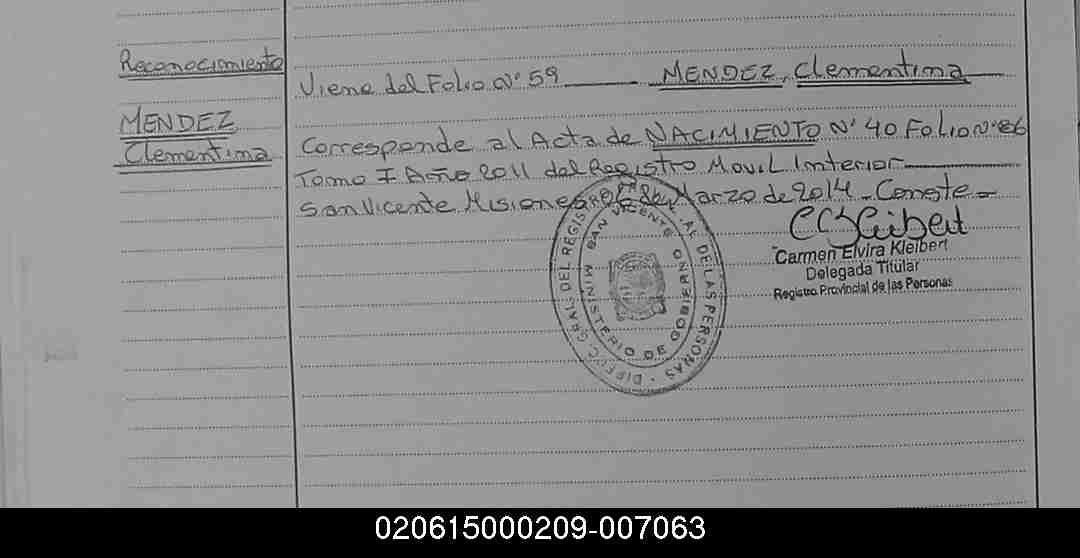 Reconocimiento
MENDEZ
Clementina
Viene del Folio N° 59 MENDEZ, Clementina
Corresponde al Acta de NACIMIENTO N° 40 Folio N° 86
Tomo I Año 2011 del Registro Movil Interior
San Vicente Misiones, de Marzo de 2014 - Conste -
Carmen Elvira Kleibert
Delegada Titular
Registro Provincial de las Personas
DE LAS PERSONAS
SAN VICENTE
MINISTERIO DE GOBIERNO
020615000209-007063